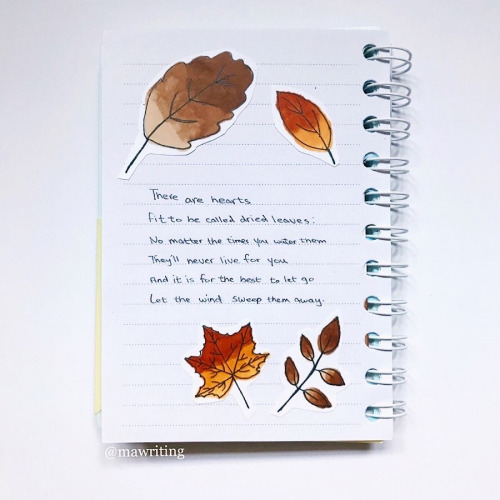 There are hearts
fit to be called dried leaves:
No matter the times you water them
They'll never live for you
And it is for the best to let go
Let the wind sweep them away.
@mawriting